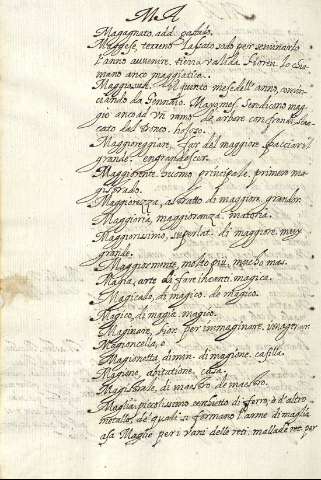 MA
Magagnato, add. passulo.
Maggese, terreno lasciato sodo per seminarlo
l'anno auuenire, tierra vallida. Fioren. lo chia
mano anco maggiatica.
Maggio, sub. il quinto mese dell'anno, comin
ciando da Gennaio. Mayo, mes. Si dicono mag
gio anco ad vn ramo de arbore con frondi, stac
cato dal tronco.
Maggioreggiar, far del maggiore
grande. engrandescer.
Maggiorente, huomo principale. primero, ma
gistrado.
Maggiorezza, astratto di maggiore, grandor.
Maggioria, maggioranza.
Maggiorissimo, superlat. di maggiore, muy
grande.
Maggiormente, molto piu, mucho mas.
Magia, arte di fare incanti, magica.
Magicado, di magico. de magico.
Magico, di magia. magico.
Maginare, fior. per immaginare, imaginar.
Magioncella, o
Magionetta, dimin. di magione. casilla.
Magione, abitatione. casa.
Magistrale, di maestro. de maestro.
Maglia, piccolissimo cerchietto di ferro, o d'altro
metallo, de quali si formano l'arme di maglia
Maglie per i vani delle reti. mallade per